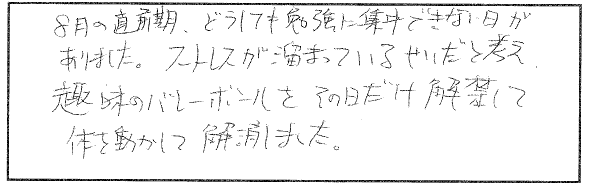 8月の直前期、どうしても勉強に集中できない日が
ありました。ストレスが溜まっているせいだと考え、
趣味のバレーボールをその日だけ解禁して
体を動かして解消しました。